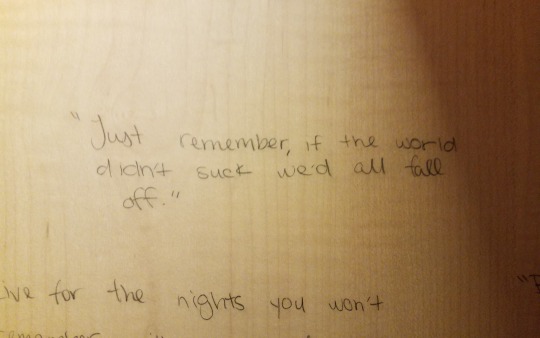 "Just remember, if the world
didn't suck we'd all fall
off."
Live for the nights you won't
remember